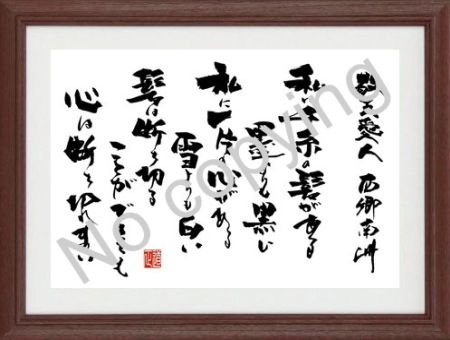 敬天愛人 西郷南洲
私に千糸の髪がある
墨よりも黒い
私に一片の心がある
雪よりも白い
髪は断ち切る
ことができても
心は断ち切れまい
No copying